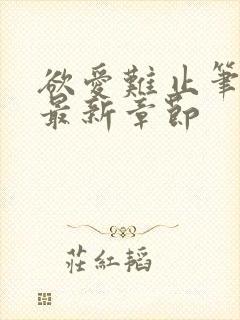 欲爱難止筆
最新章節
莊紅韜